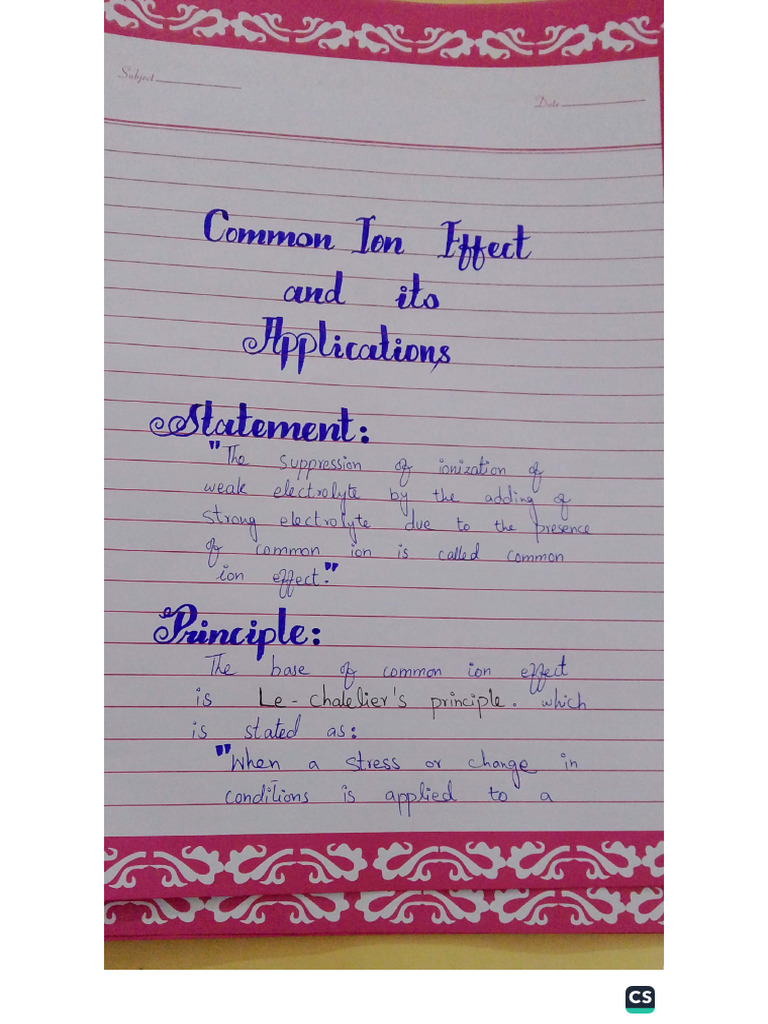 Subject
Date
Common Ion Effect
and its
Applications
Statement:
"The suppression of ionization of
weak electrolyte by the adding of
strong electrolyte due to the presence
of common ion is called common
ion effect."
Principle:
The base of common ion effect
is Le-chalelier's principle. which
is stated as:
"When a stress or change in
conditions is applied to a
CS